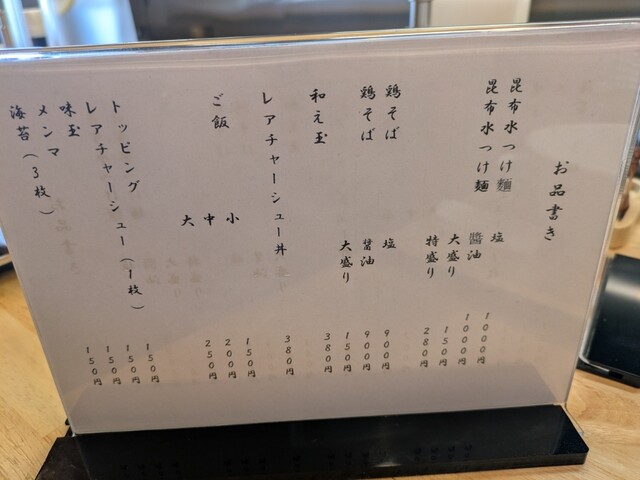 お品書き
昆布水つけ麺 塩 1000円
昆布水つけ麺 醤油 1000円
大盛り 150円
特盛り 280円
鶏そば 塩 900円
鶏そば 醤油 900円
大盛り 150円
和え玉 380円
レアチャーシュー丼 380円
ご飯 小 150円
中 200円
大 250円
トッピング
レアチャーシュー(1枚) 150円
味玉 150円
メンマ 150円
海苔(3枚) 150円